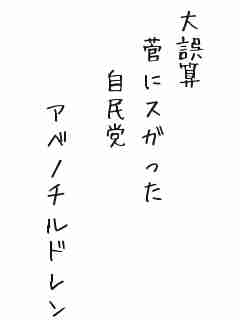 大誤算
菅にスがった
自民党
アベノチルドレン